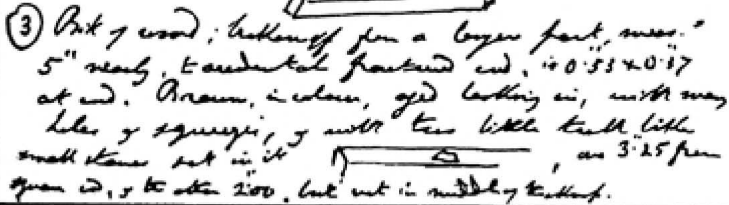 ③ Bit of wood; broken off from a larger part, meas.
5" nearly, to accidental fractured end, is 0"53 x 0"37
at end. Brown, in colour, aged looking in, with many
holes of squeegis, & with two little teeth like
small stones set in it, one 3"25 from
given end, & the other 2"00, but not in middle of